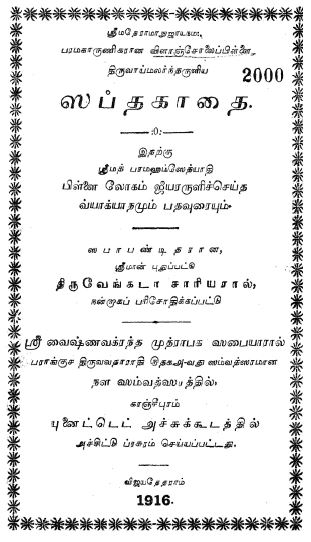 ஸ்ரீமதேராமாநுஜாயநம,
பரமகாருணிகரான விளாஞ்சோலைப்பிள்ளை,
திருவாய்மலர்ந்தருளிய
2000
ஸப்தகாதை.
:0:
இதற்கு
ஸ்ரீமத் பரமஹம்ஸேத்யாதி
பிள்ளை லோகம் ஜீயரருளிச்செய்த
வ்யாக்யாநமும் பதவுரையும்.
ஸபாபண்டிதரான,
ஸ்ரீமான் புதுப்பட்டு
திருவேங்கடா சாரியரால்,
நன்றாகப் பரிசோதிக்கப்பட்டு
ஸ்ரீ வைஷ்ணவக்ரந்த முத்ராபக ஸபையாரால்
பராங்குச திருவவதாராதி இதஅ-வது ஸம்வத்ஸரமான
நள ஸம்வத்ஸரத்தில்,
காஞ்சீபுரம்
யுனைட்டெட் அச்சுக்கூடத்தில்
அச்சிட்டு ப்ரசுரம் செய்யப்பட்டது.
விஜயதேதராம்
1916.